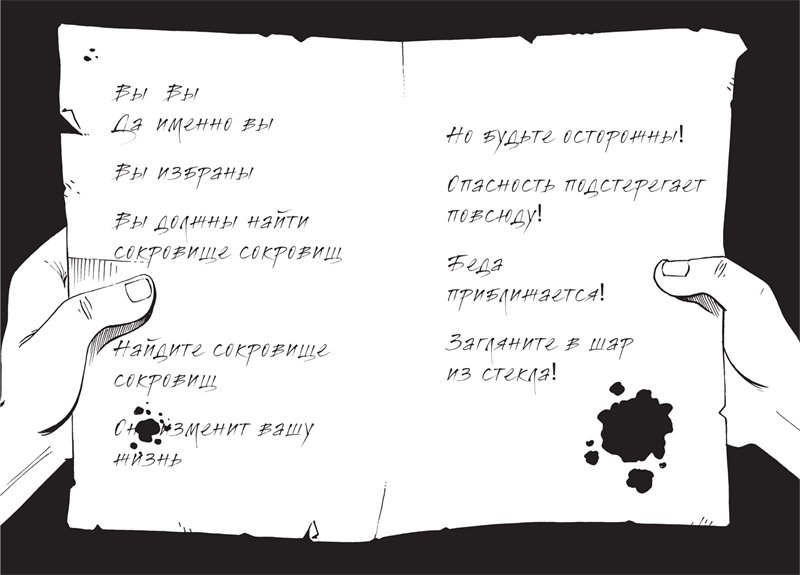 Вы Вы
Да именно вы
Вы избраны
Вы должны найти
сокровище сокровищ
Найдите сокровище
сокровищ
изменит вашу
жизнь
Но будьте осторожны!
Опасность подстерегает
повсюду!
Беда
приближается!
Загляните в шар
из стекла!